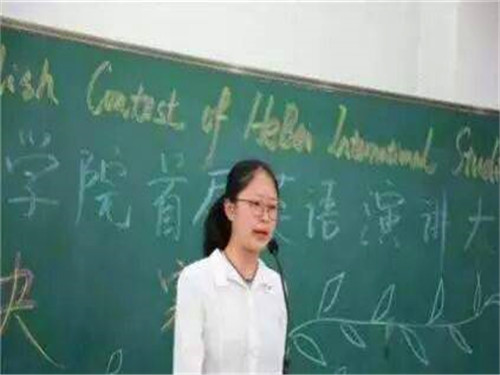 lish Contest of HeBei International Studi
学院首届英语演讲大
决